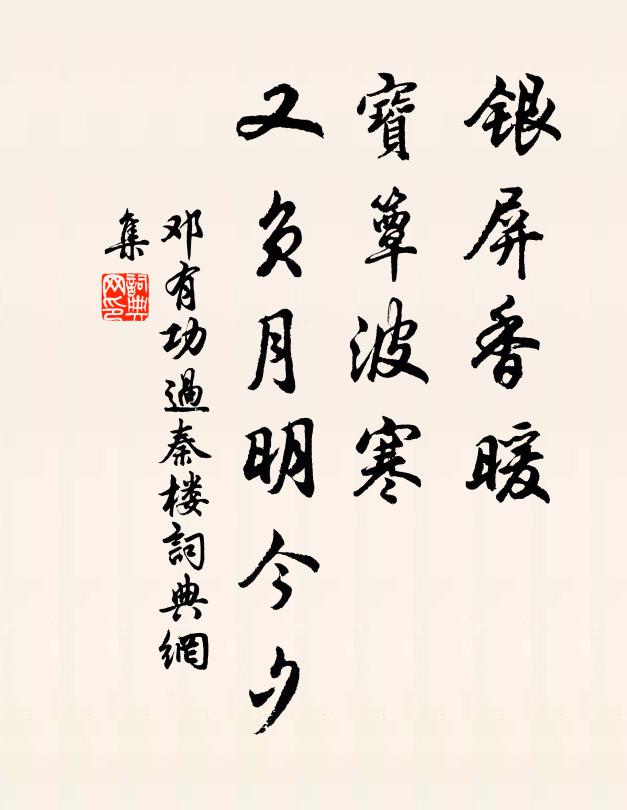 银屏香暖
寶簟波寒
又负月明今夕
邓有功過秦楼詞典網
集
詞典
网印